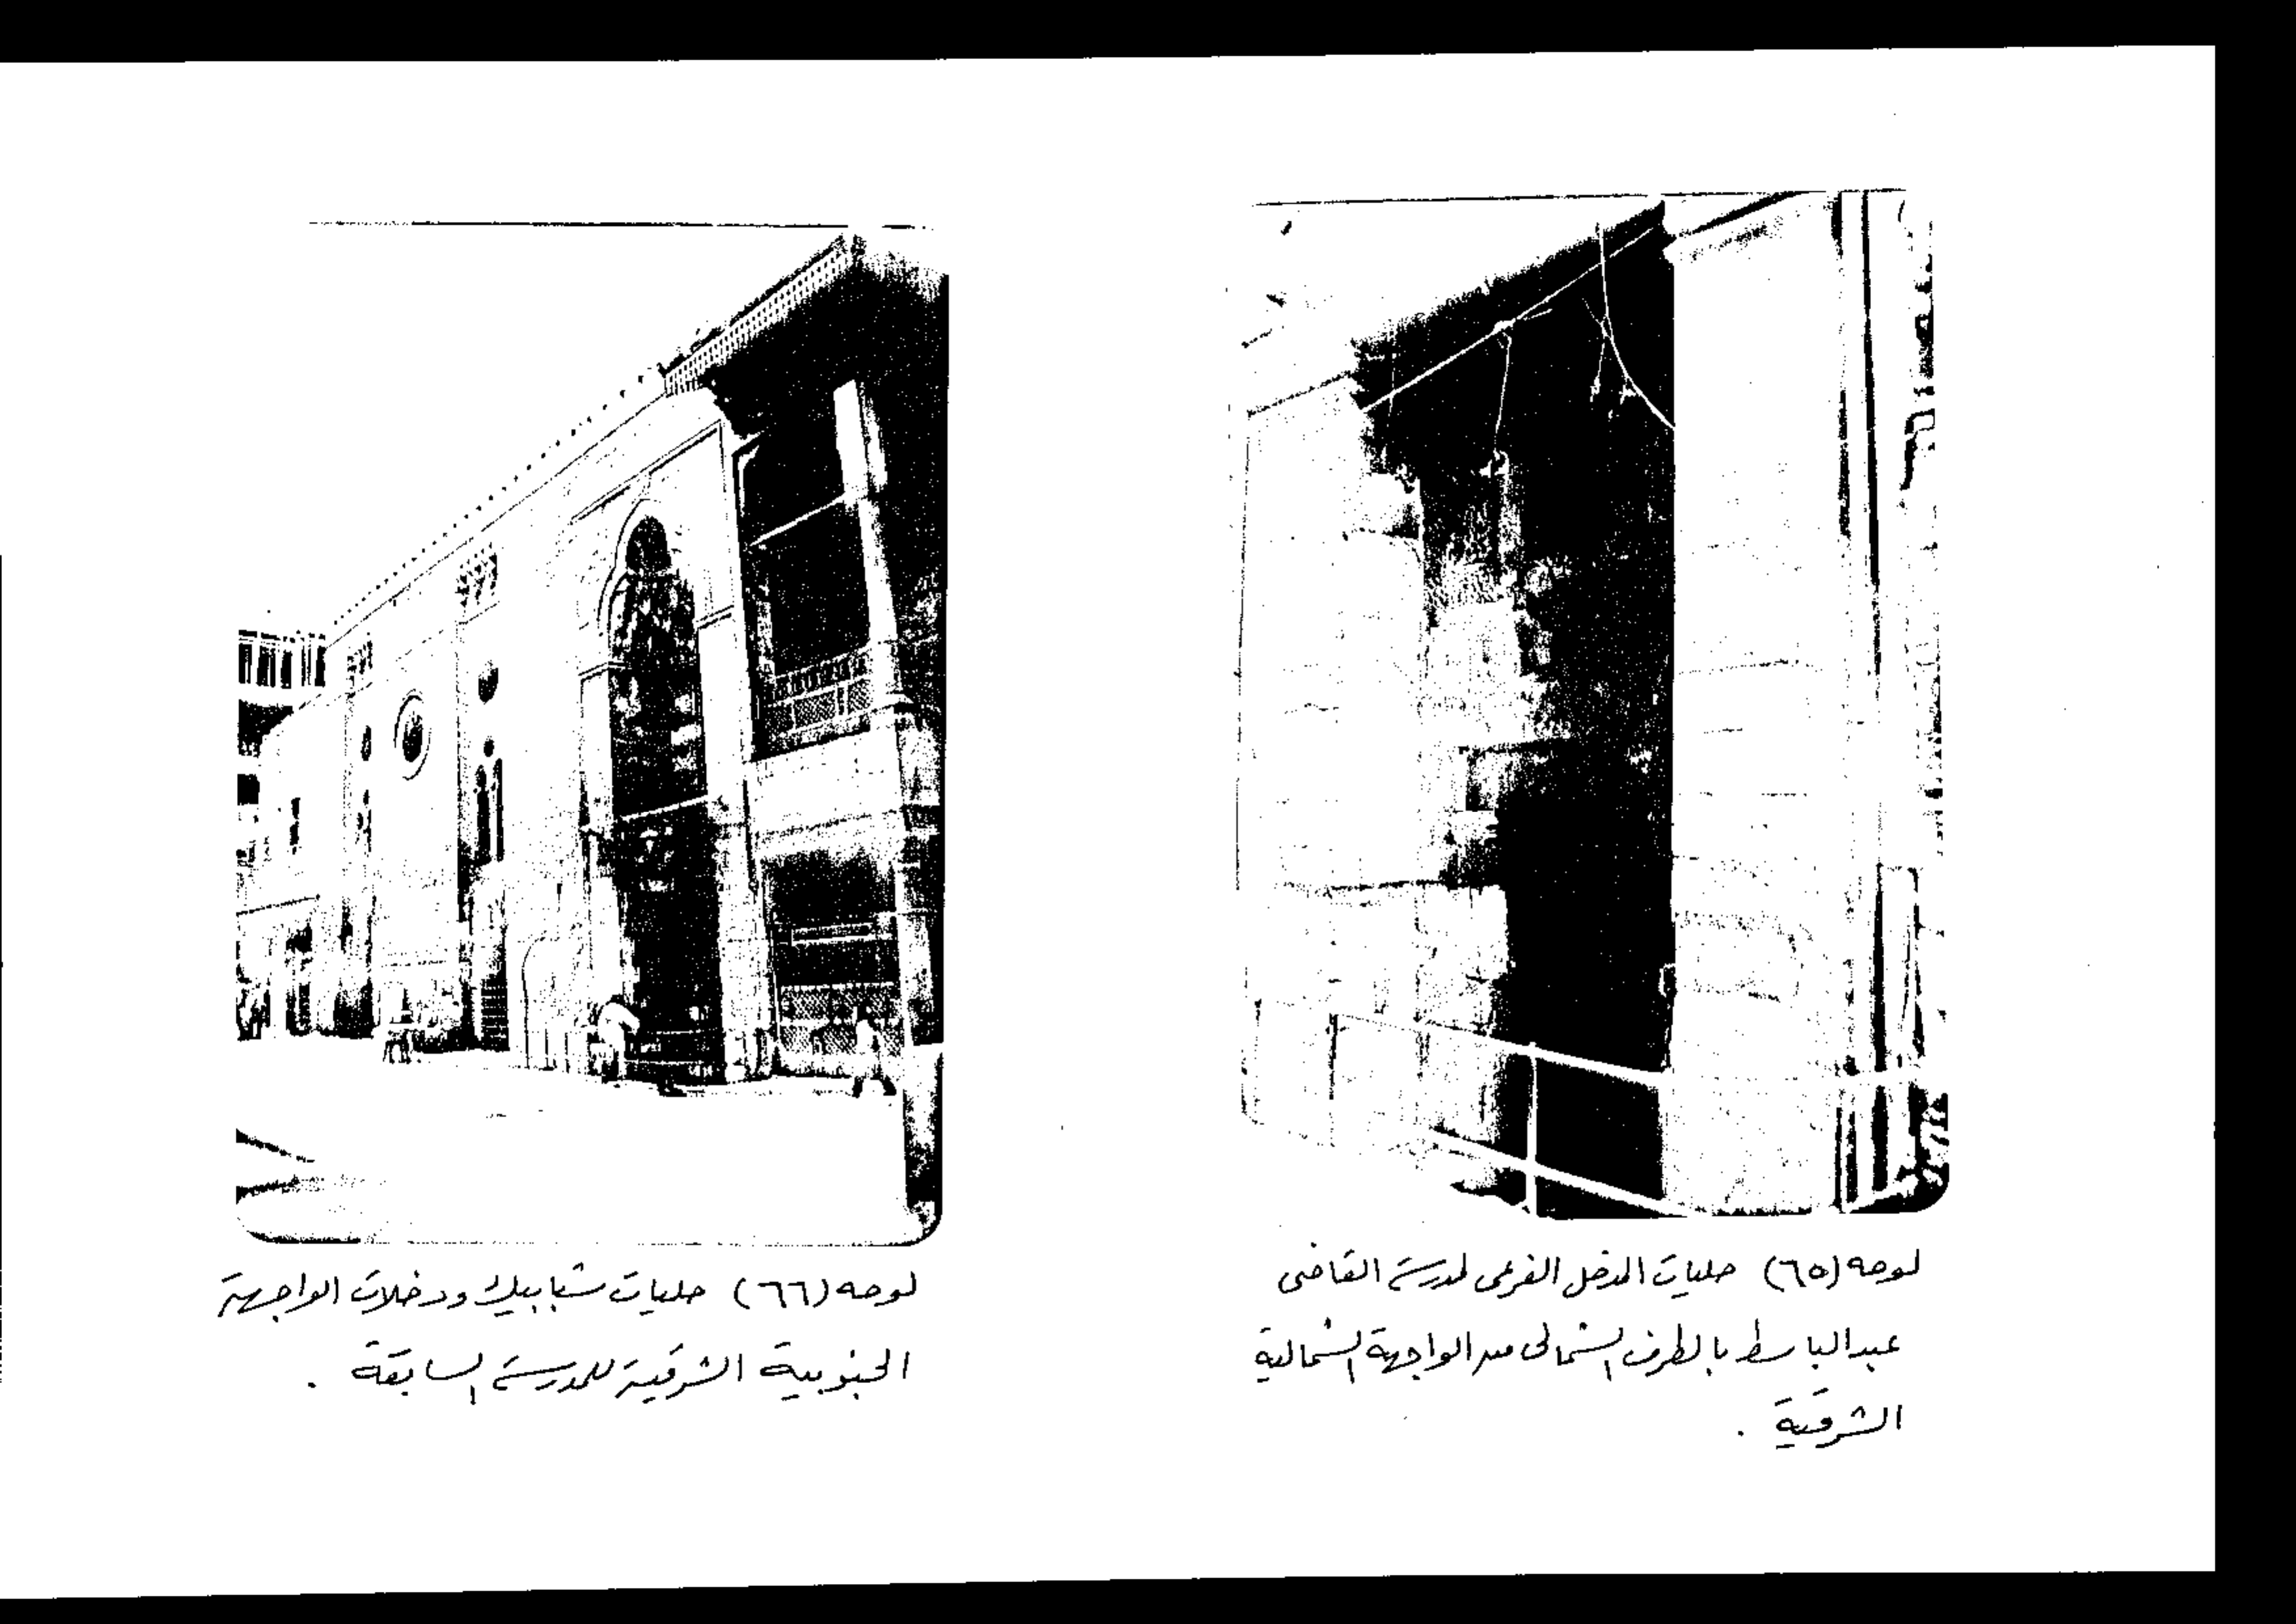 لوحه (٦٥) حليات المدخل الفرعى لمدرسة القاضى
عبدالباسط بالطرف الشمالى من الواجهة الشمالية
الشرقية .
لوحه (٦٦) حليات شبابيك ودخلات الواجهة
الجنوبية الشرقية للمدرسة السابقة .